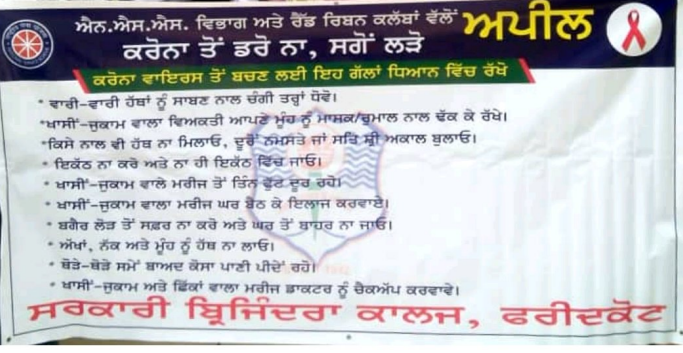 ਐਨ.ਐਸ.ਐਸ. ਵਿਭਾਗ ਅਤੇ ਰੈੱਡ ਰਿਬਨ ਕਲੱਬਾਂ ਵੱਲੋਂ ਅਪੀਲ
ਕਰੋਨਾ ਤੋਂ ਡਰੋ ਨਾ, ਸਗੋਂ ਲੜੋ
ਕਰੋਨਾ ਵਾਇਰਸ ਤੋਂ ਬਚਣ ਲਈ ਇਹ ਗੱਲਾਂ ਧਿਆਨ ਵਿੱਚ ਰੱਖੋ
* ਵਾਰੀ-ਵਾਰੀ ਹੱਥਾਂ ਨੂੰ ਸਾਬਣ ਨਾਲ ਚੰਗੀ ਤਰ੍ਹਾਂ ਧੋਵੋ।
*ਖਾਸੀਂ-ਜੁਕਾਮ ਵਾਲਾ ਵਿਅਕਤੀ ਆਪਣੇ ਮੂੰਹ ਨੂੰ ਮਾਸਕ/ਰੁਮਾਲ ਨਾਲ ਢੱਕ ਕੇ ਰੱਖੇ।
*ਕਿਸੇ ਨਾਲ ਵੀ ਹੱਥ ਨਾ ਮਿਲਾਓ, ਦੂਰੋਂ ਨਮਸਤੇ ਜਾਂ ਸਤਿ ਸ਼੍ਰੀ ਅਕਾਲ ਬੁਲਾਓ।
* ਇਕੱਠ ਨਾ ਕਰੋ ਅਤੇ ਨਾ ਹੀ ਇਕੱਠ ਵਿੱਚ ਜਾਓ।
* ਖਾਸੀਂ-ਜੁਕਾਮ ਵਾਲੇ ਮਰੀਜ ਤੋਂ ਤਿੰਨ ਫੁੱਟ ਦੂਰ ਰਹੋ।
* ਖਾਸੀਂ-ਜੁਕਾਮ ਵਾਲਾ ਮਰੀਜ ਘਰ ਬੈਠ ਕੇ ਇਲਾਜ ਕਰਵਾਏ।
* ਬਗੈਰ ਲੋੜ ਤੋਂ ਸਫ਼ਰ ਨਾ ਕਰੋ ਅਤੇ ਘਰ ਤੋਂ ਬਾਹਰ ਨਾ ਜਾਓ।
* ਅੱਖਾਂ, ਨੱਕ ਅਤੇ ਮੂੰਹ ਨੂੰ ਹੱਥ ਨਾ ਲਾਓ।
* ਥੋੜੇ-ਥੋੜੇ ਸਮੇਂ ਬਾਅਦ ਕੋਸਾ ਪਾਣੀ ਪੀਂਦੇ ਰਹੋ।
* ਖਾਸੀਂ-ਜੁਕਾਮ ਅਤੇ ਛਿੱਕਾਂ ਵਾਲਾ ਮਰੀਜ ਡਾਕਟਰ ਨੂੰ ਚੈਕਅੱਪ ਕਰਵਾਵੇ।
ਸਰਕਾਰੀ ਬ੍ਰਿਜਿੰਦਰਾ ਕਾਲਜ, ਫਰੀਦਕੋਟ